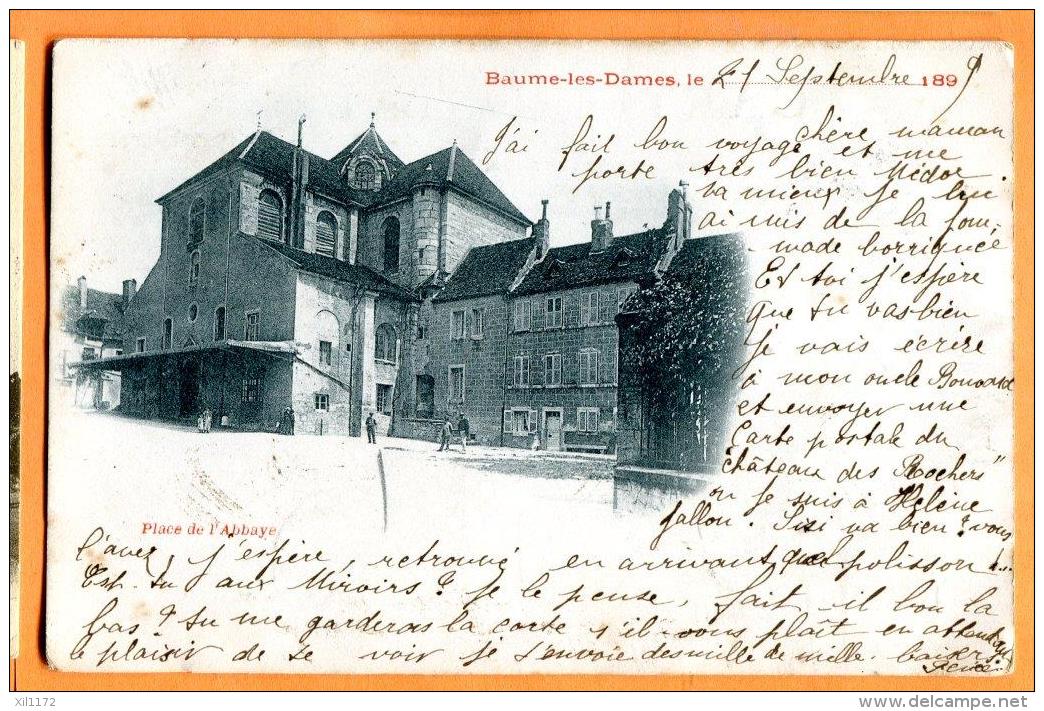 Baume-les-Dames, le 21 Septembre 1899
chère maman
J'ai fait bon voyage et me
porte très bien Médor
va mieux je lui
ai mis de la pom,
made borriquée
Et toi j'espère
que tu vas bien
Je vais écrire
à mon oncle Bouvard
et envoyer une
Carte postale du
"château des Rochers"
ou je suis à Helène
Jallon. Sizi va bien? vous
Place de l'Abbaye
l'avez, j'espère, retrouvé en arrivant, quel polisson!...
Es-tu aux Miroirs? je le pense, fait-il bon la
bas? Tu me garderas la carte s'il-vous plaît en attendant
le plaisir de te voir je t'envoie des mille de mille. baisers
xil1172
www.delcampe.net